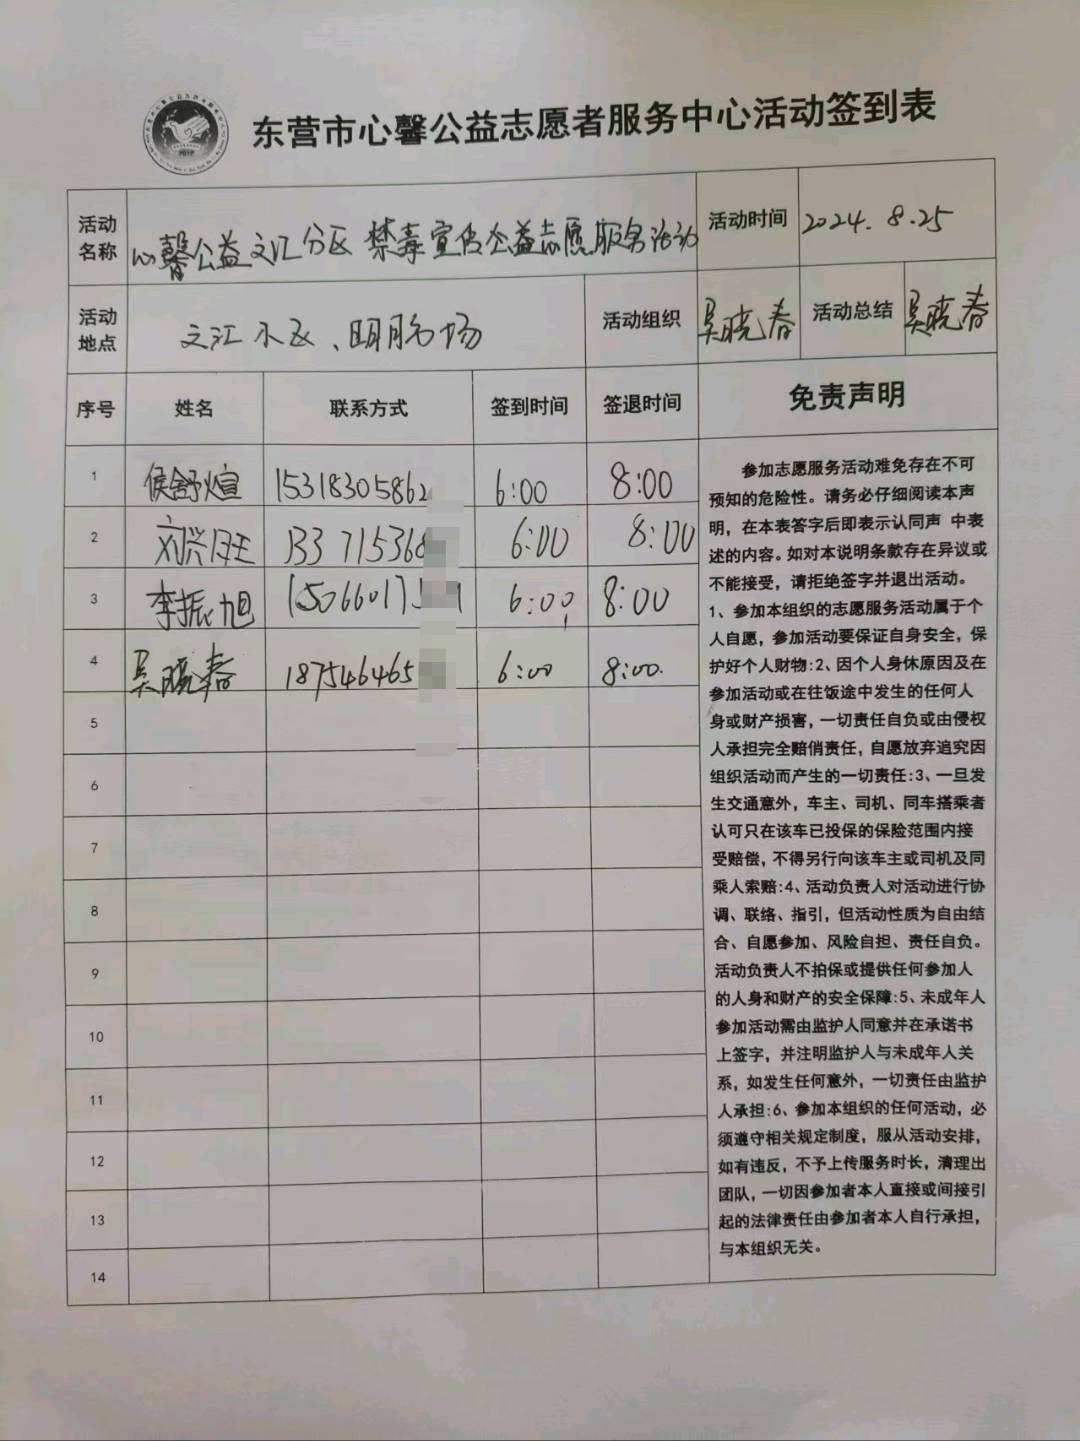 东营市心馨公益志愿者服务中心活动签到表
活动名称 心馨公益文汇分区 禁毒宣传公益志愿服务活动 活动时间 2024.8.25
活动地点 文汇小区、明月 活动组织 吴晓春 活动总结 吴晓春
序号 姓名 联系方式 签到时间 签退时间 免责声明
1 侯舒煊 15318305862 6:00 8:00
2 刘兴旺 133715368 6:00 8:00
3 李振旭 150660175 6:00 8:00
4 吴晓春 187546465 6:00 8:00
5
6
7
8
9
10
11
12
13
14
参加志愿服务活动难免存在不可
预知的危险性。请务必仔细阅读本声
明，在本表答字后即表示认同声 中表
述的内容。如对本说明条款存在异议或
不能接受，请拒绝签字并退出活动。
1、参加本组织的志愿服务活动属于个
人自愿，参加活动要保证自身安全，保
护好个人财物:2、因个人身休原因及在
参加活动或在往饭途中发生的任何人
身或财产损害，一切责任自负或由侵权
人承担完全赔俏责任，自愿放弃追究因
组织活动而产生的一切责任:3、一旦发
生交通意外，车主、司机、同车搭乘者
认可只在该车已投保的保险范围内接
受赔偿，不得另行向该车主或司机及同
乘人索赔:4、活动负责人对活动进行协
调、联络、指引，但活动性质为自由结
合、自愿参加、风险自担、责任自负。
活动负责人不拍保或提供任何参加人
的人身和财产的安全保障:5、未成年人
参加活动需由监护人同意并在承诺书
上签字，并注明监护人与未成年人关
系，如发生任何意外，一切责任由监护
人承担:6、参加本组织的任何活动，必
须遵守相关规定制度，服从活动安排，
如有违反，不予上传服务时长，清理出
团队，一切因参加者本人直接或间接引
起的法律责任由参加者本人自行承担，
与本组织无关。